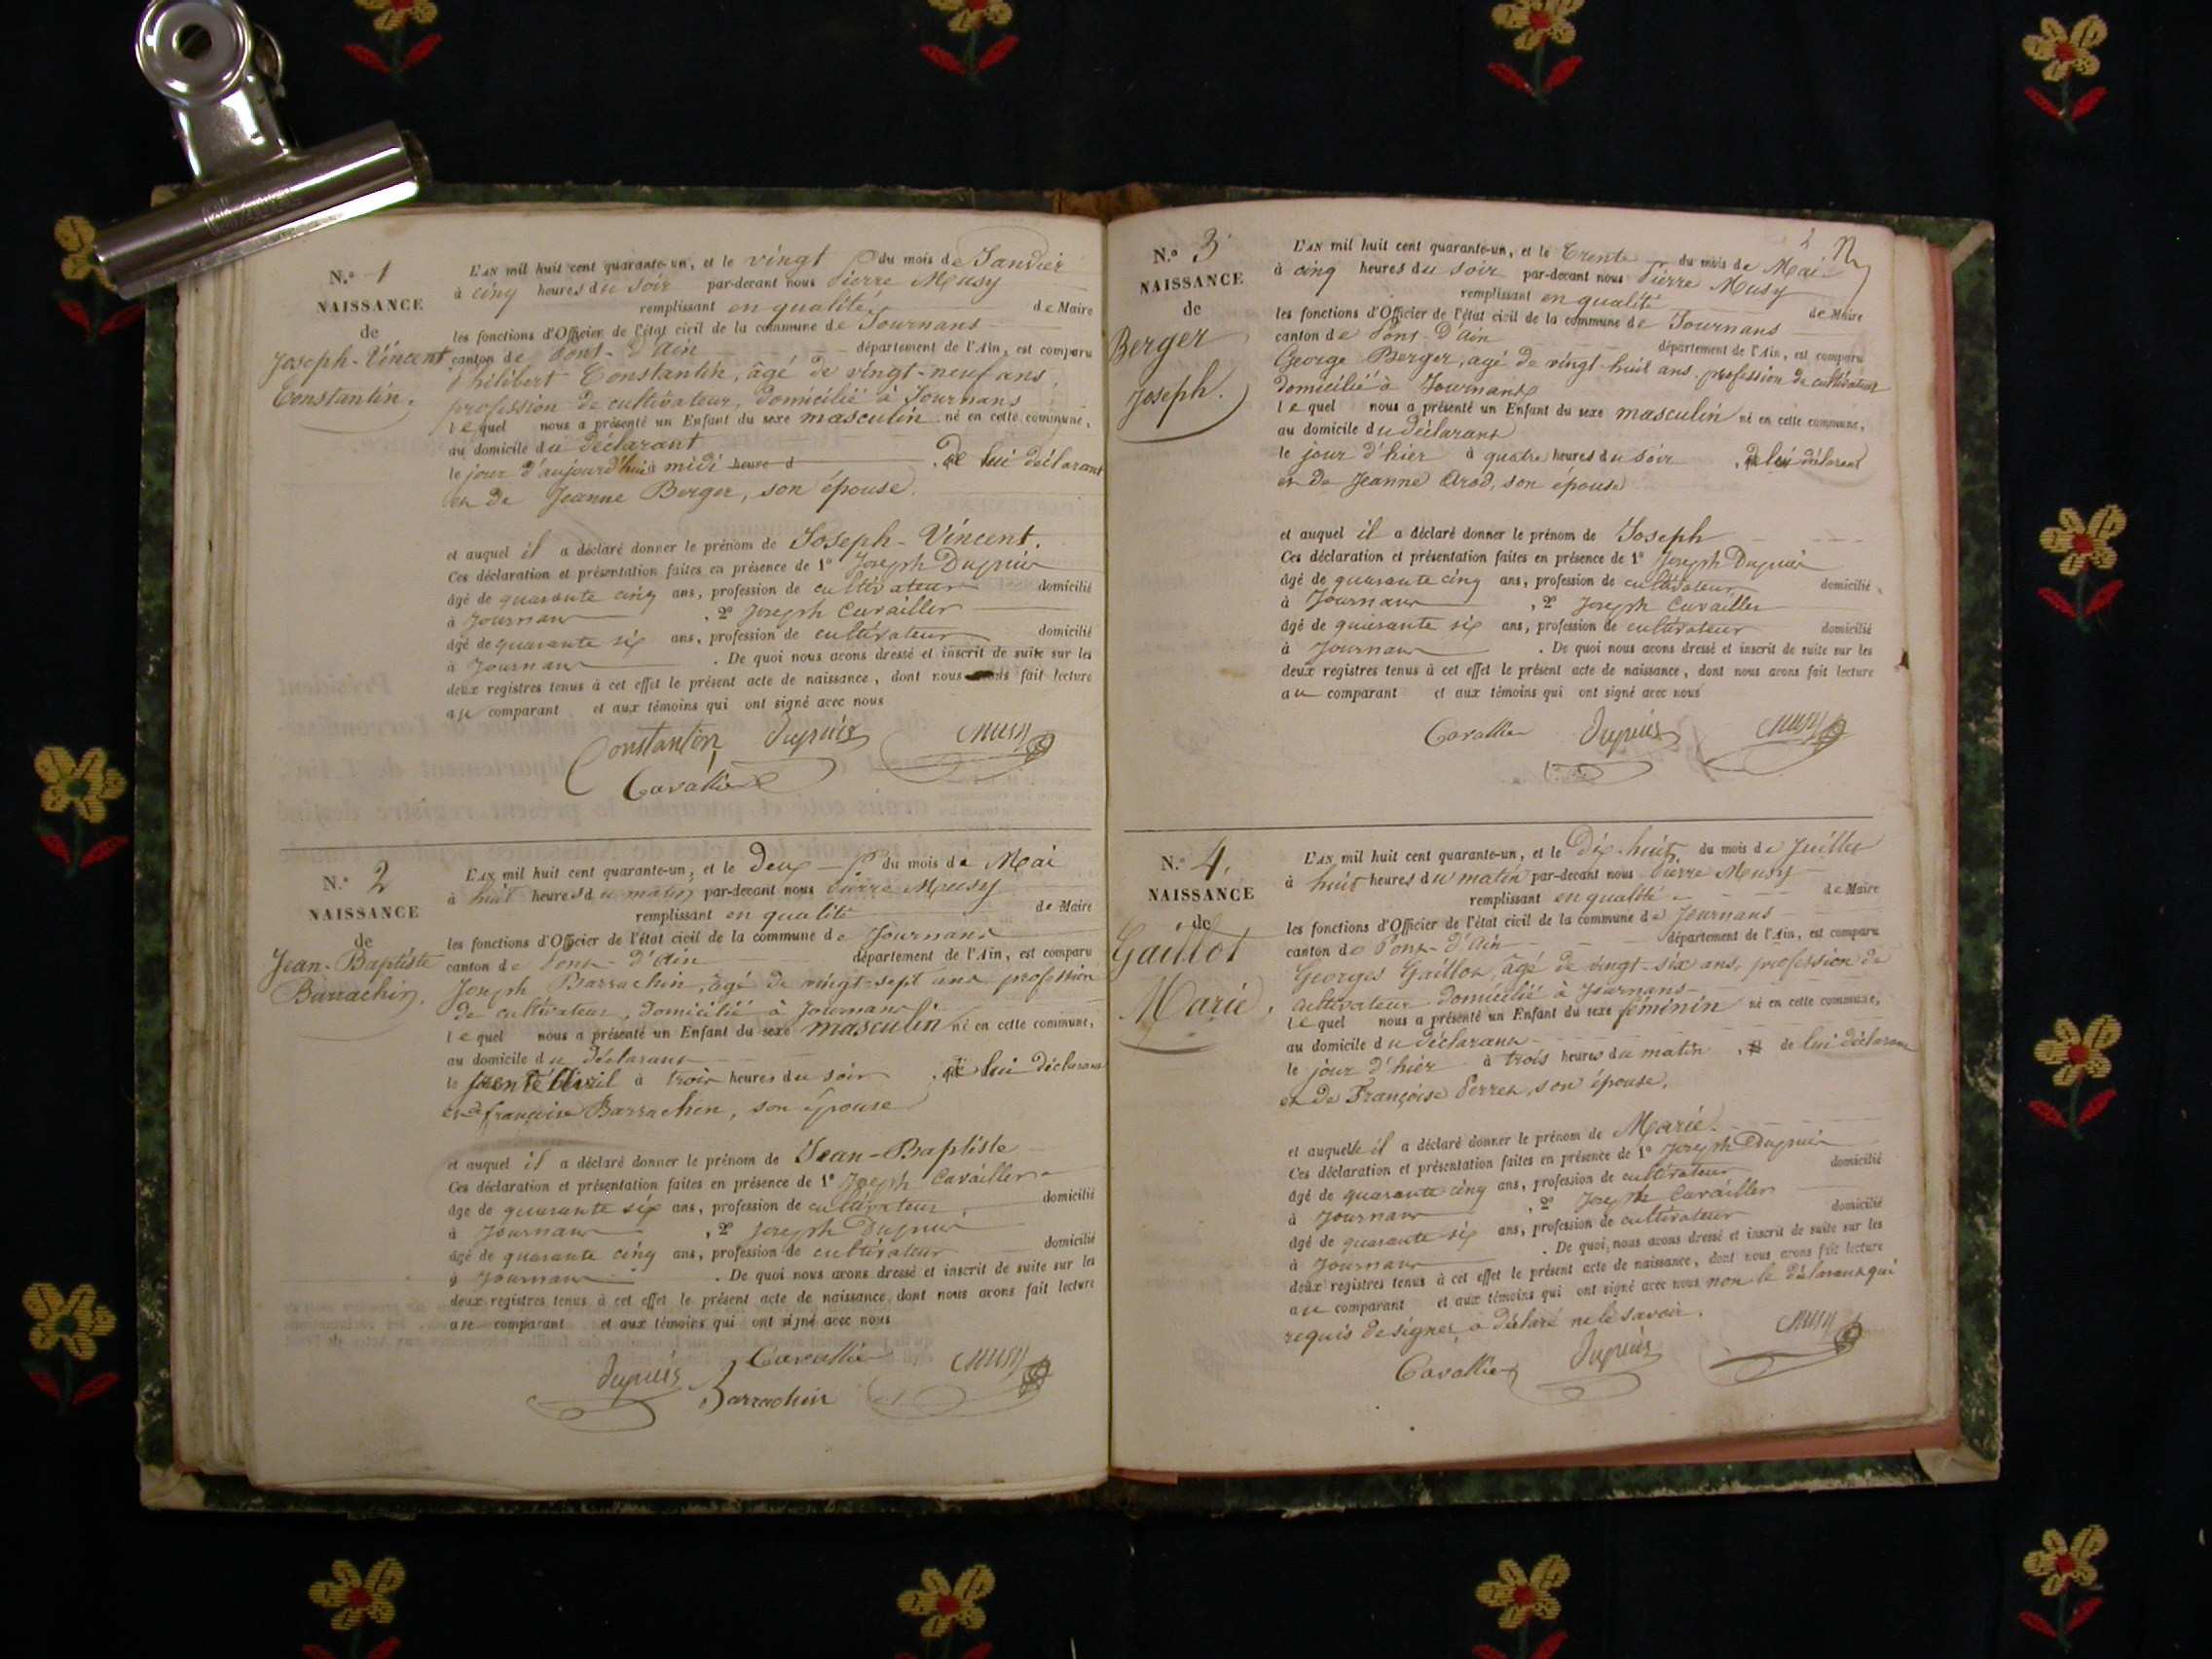 N.° 1
NAISSANCE
de
Joseph-Vincent
Constantin.
L'AN mil huit cent quarante-un, et le vingt du mois de Janvier
à cinq heures du soir par-devant nous Pierre Musy
remplissant en qualité de Maire
les fonctions d'Officier de l'état civil de la commune de Journans
canton de Pont-d'Ain département de l'Ain, est comparu
Philibert Constantin, âgé de vingt-neuf ans,
profession de cultivateur, domicilié à Journans
lequel nous a présenté un Enfant du sexe masculin né en cette commune,
au domicile du déclarant
le jour d'aujourd'hui à midi heure d de lui déclarant
et de Jeanne Berger, son épouse.
et auquel il a déclaré donner le prénom de Joseph-Vincent.
Ces déclaration et présentation faites en présence de 1° Joseph Dupuis
âgé de quarante cinq ans, profession de cultivateur domicilié
à Journans , 2° Joseph Cavailler
âgé de quarante six ans, profession de cultivateur domicilié
à Journans . De quoi nous avons dressé et inscrit de suite sur les
deux registres tenus à cet effet le présent acte de naissance, dont nous avons fait lecture
au comparant et aux témoins qui ont signé avec nous
Constantin Dupuis Musy
Cavallier
N.° 2
NAISSANCE
de
Jean-Baptiste
Barrachin.
L'AN mil huit cent quarante-un, et le Deux du mois de Mai
à huit heures du matin par-devant nous Pierre Musy
remplissant en qualité de Maire
les fonctions d'Officier de l'état civil de la commune de Journans
canton de Pont-d'Ain département de l'Ain, est comparu
Joseph Barrachin, âgé de vingt-sept ans profession
de cultivateur, domicilié à Journans
lequel nous a présenté un Enfant du sexe masculin né en cette commune,
au domicile du déclarant
le trente avril à trois heures du soir , de lui déclarant
et de françoise Barrachin, son épouse
et auquel il a déclaré donner le prénom de Jean-Baptiste
Ces déclaration et présentation faites en présence de 1° Joseph Cavailler
âgé de quarante six ans, profession de cultivateur, domicilié
à Journans , 2° Joseph Dupuis
âgé de quarante cinq ans, profession de cultivateur domicilié
à Journans . De quoi nous avons dressé et inscrit de suite sur les
deux registres tenus à cet effet le présent acte de naissance, dont nous avons fait lecture
au comparant et aux témoins qui ont signé avec nous
Dupuis Cavallier Musy
Barrachin
N.° 3
NAISSANCE
de
Berger
Joseph.
L'AN mil huit cent quarante-un, et le Trente du mois de Mai
à cinq heures du soir par-devant nous Pierre Musy
remplissant en qualité de Maire
les fonctions d'Officier de l'état civil de la commune de Journans
canton de Pont-d'Ain département de l'Ain, est comparu
George Berger, agé de vingt-huit ans, profession de cultivateur
domicilié à Journans
lequel nous a présenté un Enfant du sexe masculin né en cette commune,
au domicile du déclarant
le jour d'hier à quatre heures du soir , de lui déclarant
et de Jeanne Arod, son épouse
et auquel il a déclaré donner le prénom de Joseph
Ces déclaration et présentation faites en présence de 1° Joseph Dupuis
âgé de quarante cinq ans, profession de cultivateur domicilié
à Journans , 2° Joseph Cavailler
âgé de quarante six ans, profession de cultivateur domicilié
à Journans . De quoi nous avons dressé et inscrit de suite sur les
deux registres tenus à cet effet le présent acte de naissance, dont nous avons fait lecture
au comparant et aux témoins qui ont signé avec nous
Cavallier Dupuis Musy
N.° 4.
NAISSANCE
de
Gaillot
Marie.
L'AN mil huit cent quarante-un, et le Dix-huit du mois de Juillet
à huit heures du matin par-devant nous Pierre Musy
remplissant en qualité de Maire
les fonctions d'Officier de l'état civil de la commune de Journans
canton de Pont-d'Ain département de l'Ain, est comparu
Georges Gaillot, âgé de vingt-six ans, profession de
cultivateur domicilié à Journans
lequel nous a présenté un Enfant du sexe féminin né en cette commune,
au domicile du déclarant
le jour d'hier à trois heures du matin , de lui déclarant
et de Françoise Perret, son épouse.
et auquelle il a déclaré donner le prénom de Marie.
Ces déclaration et présentation faites en présence de 1° Joseph Dupuis
âgé de quarante cinq ans, profession de cultivateur domicilié
à Journans , 2° Joseph Cavailler
âgé de quarante six ans, profession de cultivateur domicilié
à Journans . De quoi nous avons dressé et inscrit de suite sur les
deux registres tenus à cet effet le présent acte de naissance, dont nous avons fait lecture
au comparant et aux témoins qui ont signé avec nous non le déclarant qui
requis de signer, a déclaré ne le savoir.
Cavallier Dupuis Musy